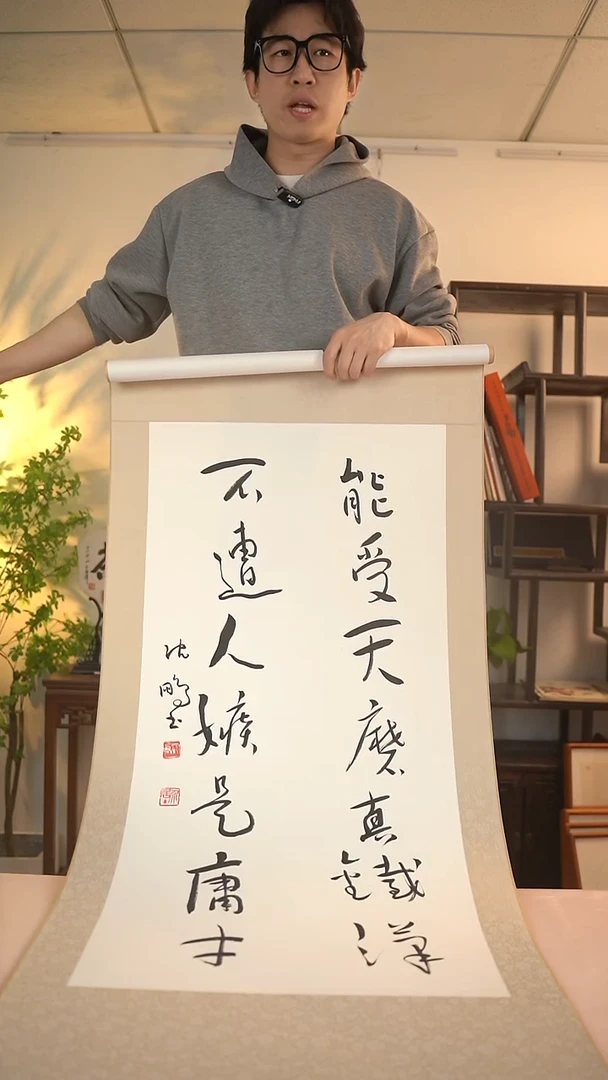 能受天磨真鐵漢
不遭人嫉是庸才
沈鵬书